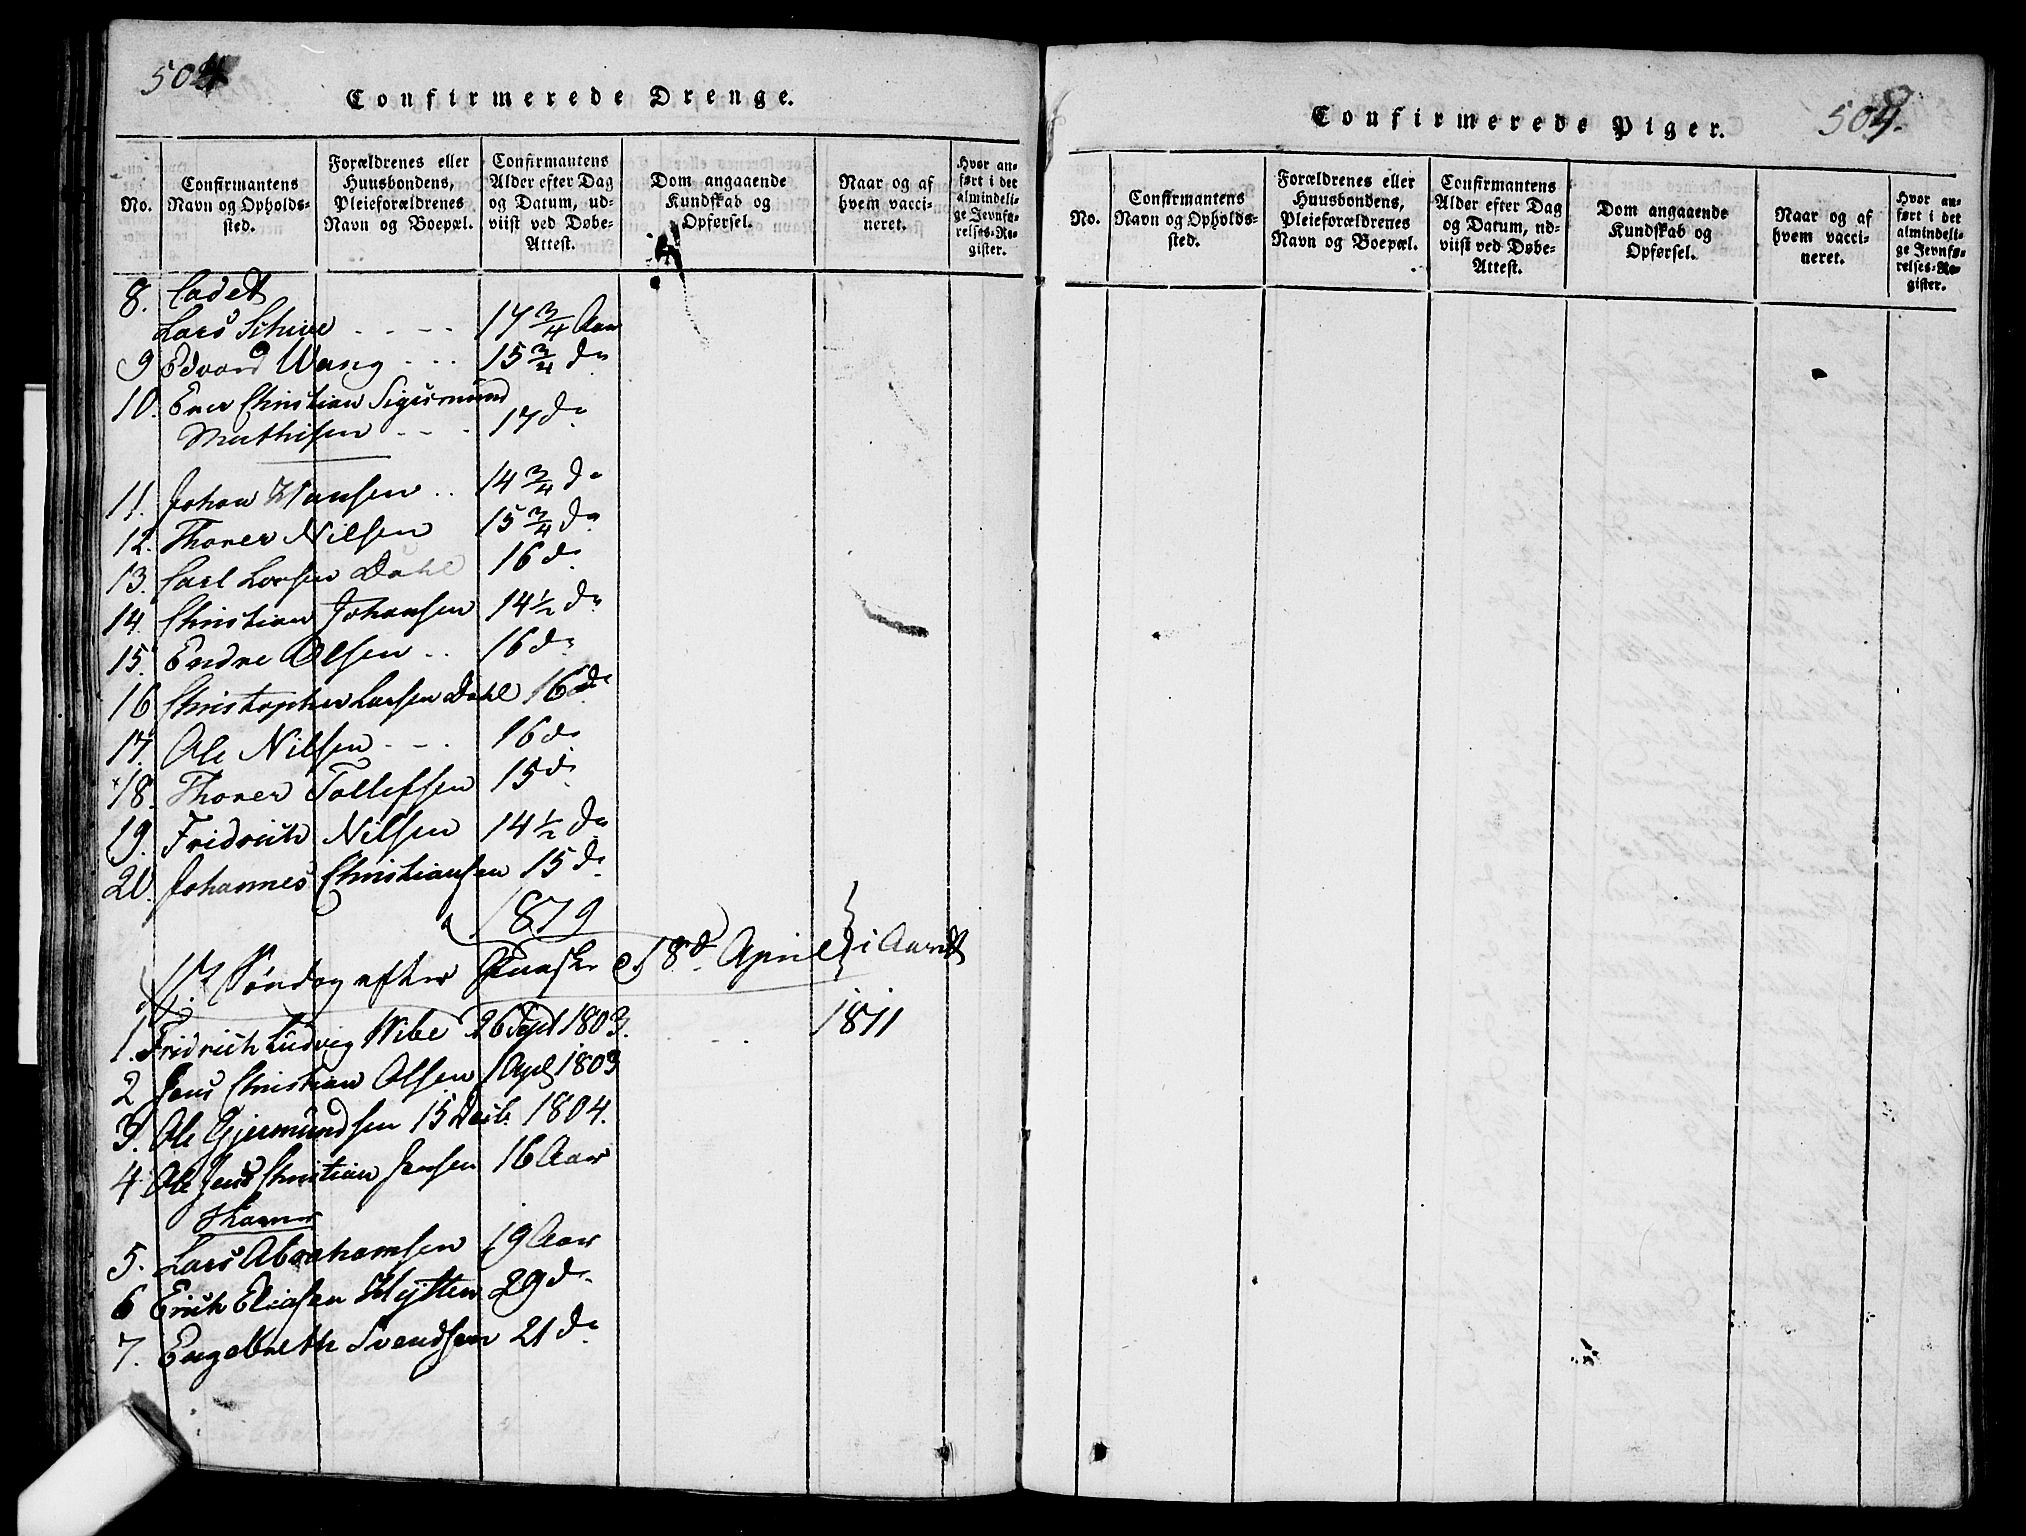 504
Confirmerede Drenge.
No.
Confirmantens
Navn og Opholds-
sted.
Forældrenes eller
Huusbondens,
Pleieforældrenes
Navn og Boepæl.
Confirmantens
Alder efter Dag
og Datum, ud-
viist ved Døbe-
Attest.
Dom angaaende
Kundskab og
Opførsel.
Naar og af
hvem vacci-
neret.
Hvor an-
ført i det
almindeli-
ge Jevnfø-
relses-Re-
gister.
8. Cadet
Lars Schive - - - - 17 3/4 Aar
9 Edvard Wang - - - 15 3/4 do
10. Ener Christian Sigismund
Mathisen - - - 17 do
11. Johan Hansen .. 14 3/4 do
12. Thorer Nilsen 15 3/4 do
13. Carl Larsen Dahl 16 do
14. Christian Johansen 14 1/2 do
15. Endre Olsen .. 16 do
16 Christopher Larsen Dahl 16 do
17. Ole Nilsen - - - 16 do
18. Thorer Tollefsen 15 do
19. Fridrich Nilsen 14 1/2 do
20. Johannes Christiansen 15 do
Søndag efter Paaske 18d April i Aaret
1. Fridrich Ludvig Wibe 26 Sept 1803. - - - 1811
2 Jens Christian Olsen 1 Apl 1803
3. Ole Gjermundsen 15 Decb. 1804.
4 Ole Jens Christian Jensen 16 Aar
5. Lars Abrahamsen 19 Aar
6 Erich Eliasen Hytten 29 do
7. Engebreth Svendsen 21 do
Confirmerede Piger.
504.
No.
Confirmantens
Navn og Opholds-
sted.
Forældrenes eller
Huusbondens,
Pleieforældrenes
Navn og Boepæl.
Confirmantens
Alder efter Dag
og Datum, ud-
viist ved Døbe-
Attest.
Dom angaaende
Kundskab og
Opførsel.
Naar og af
hvem vacci-
neret.
Hvor an-
ført i det
almindeli-
ge Jevnfø-
relses-Re-
gister.